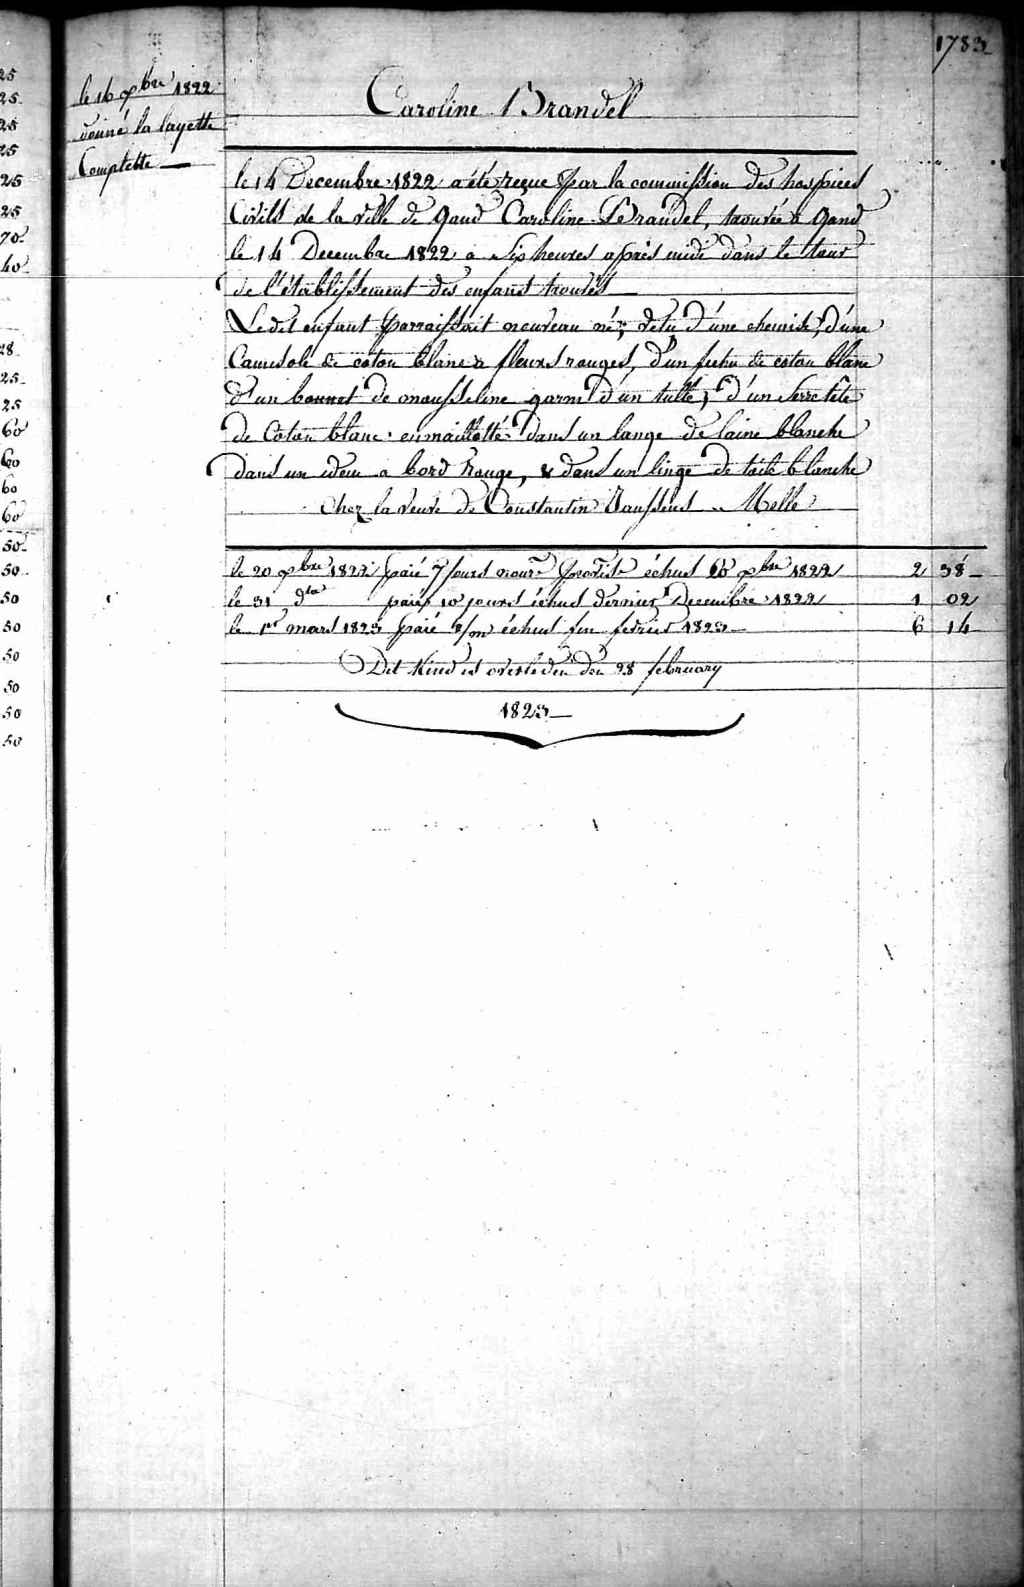 1783
le 16 Xbre 1822
donné la layette
Complette —
Caroline Brandel
le 14 Decembre 1822 a été reçue par la commission des hospices
Civils de la ville de Gand Caroline Brandel, trouvée à Gand
le 14 Decembre 1822 a Six heures après midi dans le tour
de l'établissement des enfants trouvés
Le dit enfant parraissait nouveau né, vetu d'une chemise, d'une
Camisole de coton blanc a fleurs rouges, d'un fichu de coton blanc
d'un bonnet de mousseline garni d'un tulle, d'un Serre tête
de Coton blanc. enmaillotté dans un lange de laine blanche
dans un idem a bord Rouge, & dans un linge de toile blanche
Chez la veuve de Constantin Janssens .. Melle
le 20 Xbre 1822 paié 7 jours nource provise échus 20 Xbre 1822 2 38
le 31 dto paié 10 jours échus dernier Decembre 1822 1 02
le 1er mars 1823 paié 2/m échus fin fevrier 1823 6 14
Dit Kind is overleden den 28 february
1823
25
25
25
25
25
25
70
40
28
25
25
60
60
60
60
50
50
50
50
50
50
50
50